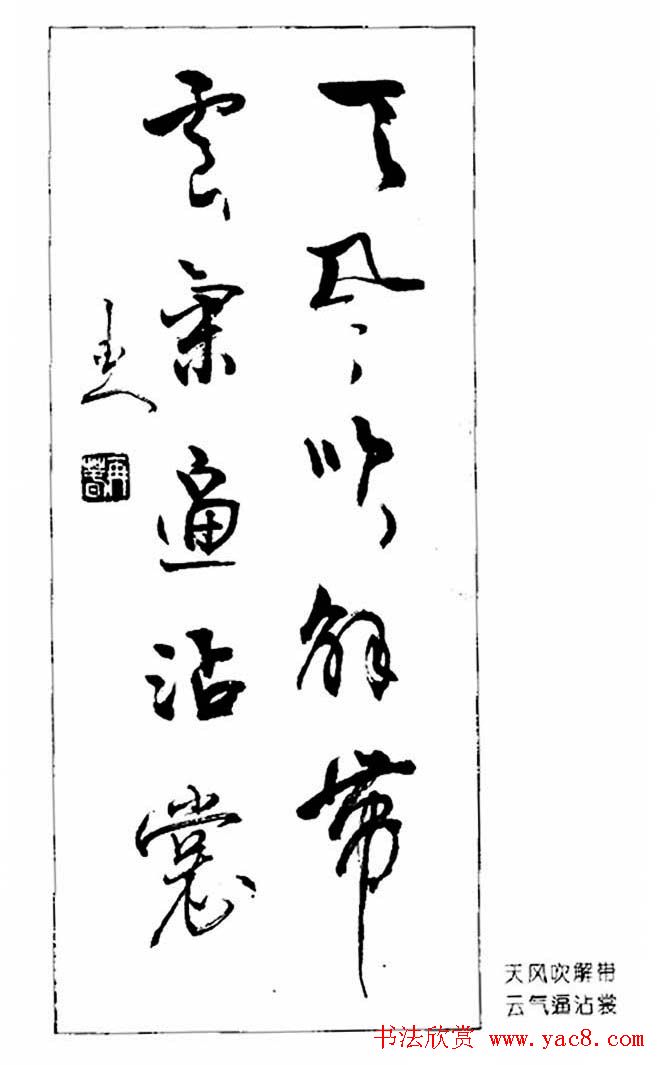 天风吹解带
雲氣逼沾裳
天风吹解带
云气逼沾裳
书法欣赏 www.yac8.com